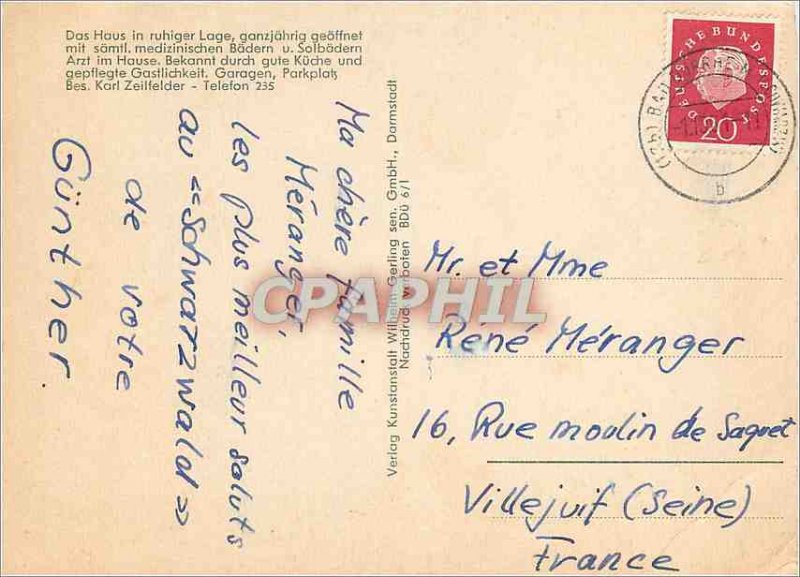 Das Haus in ruhiger Lage, ganzjährig geöffnet
mit sämtl. medizinischen Bädern u. Solbädern
Arzt im Hause. Bekannt durch gute Küche und
gepflegte Gastlichkeit. Garagen, Parkplatz
Bes. Karl Zeilfelder - Telefon 235
Ma chère famille
Méranger,
les plus meilleur saluts
au «Schwarzwald»
de votre
Günther.
Verlag Kunstanstalt Wilhelm Gerling sen. GmbH., Darmstadt
Nachdruck verboten BDü 6/1
DEUTSCHE BUNDESPOST
20
BAD
b
Mr. et Mme
René Méranger
16, Rue moulin de Saquet
Villejuif (Seine)
France
CPAPHIL